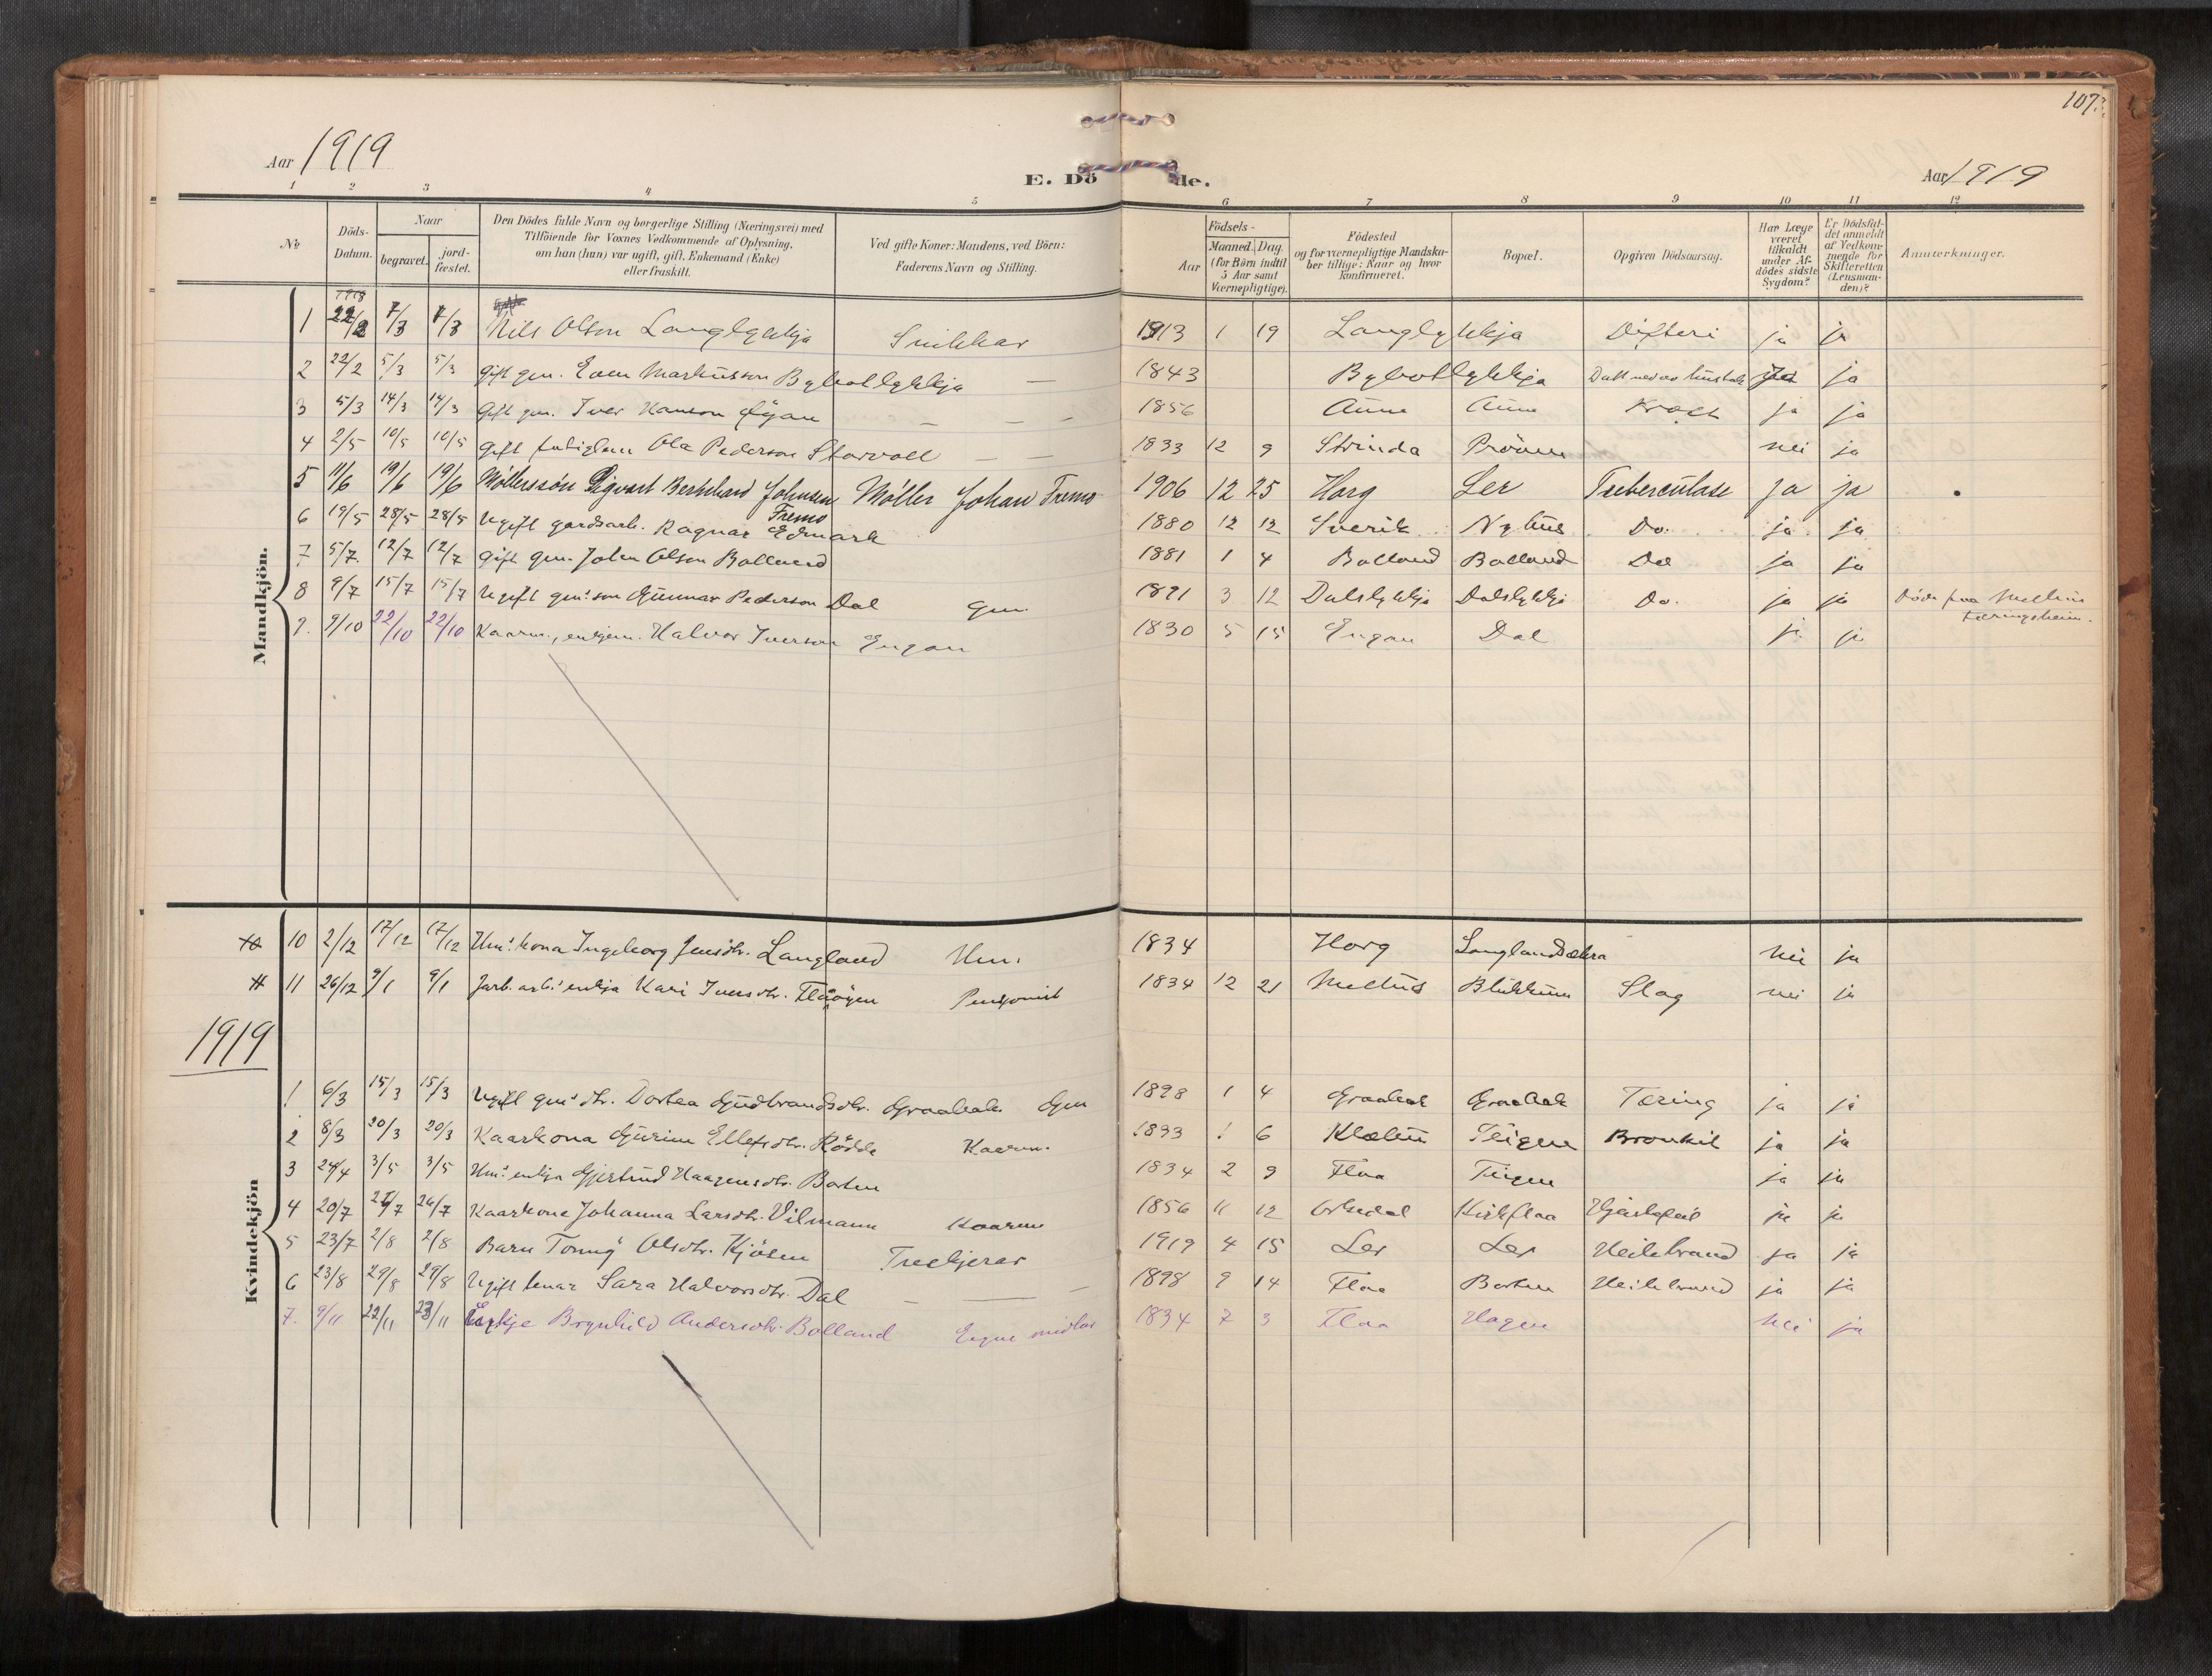 107.
Aar 1919
E. Dö de.
Aar 1919
1 2 3 4 5 6 7 8 9 10 11 12
No
Döds-Datum.
Naar
begravet.
jord-fæstet.
Den Dödes fulde Navn og borgerlige Stilling (Næringsvei) med
Tilföiende for Voxnes Vedkommende af Oplysning,
om han (hun) var ugift, gift, Enkemand (Enke)
eller fraskilt.
Ved gifte Koner: Mandens, ved Börn:
Faderens Navn og Stilling.
Födsels-
Aar
Maaned. Dag.
(for Börn indtil
5 Aar samt
Værnepligtige).
Födested
og for værnepligtige Mandska-
ber tillige: Naar og hvor
konfirmeret.
Bopæl.
Opgiven Dödsaarsag.
Har Læge
været
tilkaldt
under Af-
dödes sidste
Sygdom?
Er Dödsfal-
det anmeldt
af Vedkom-
mende for
Skifteretten
(Lensman-
den)?
Anmærkninger.
Mandkjön.
1918
1 22/2 7/3 7/3 Nils Olson Langlykkja Snikkar 1913 1 19 Langlykkja Difteri ja ja
2 22/2 5/3 5/3 Gift gm. Even Markusson Bybotlykkja — 1843 Bybotlykkja Datt ned av ja
3 5/3 14/3 14/3 Gift gm. Iver Hanson Øyan — — — 1856 Aune Aune Kræft ja ja
4 2/5 10/5 10/5 Gift Ola Pederson Storvoll — — 1833 12 9 Strinda nei ja
5 11/6 19/6 19/6 Møllerssön Sigvart Bernhard Johnsen Fremo Møller Johan Fremo 1906 12 25 Horg Ler Tuberculose ja ja
6 19/5 28/5 28/5 Ugift gardsarb. Ragnar Edmark 1880 12 12 Sverik Nyhus Do. ja ja
7 5/7. 12/7 12/7 Gift gm. John Olson Bolland 1881 1 4 Bolland Bolland Do ja ja
8 9/7 15/7 15/7 Ugift gm.s son Gunnar Pederson Dal Gm. 1891 3 12 Dalslykkja Dalslykkja Do. ja ja Døde paa Melhus tæringsheim.
9. 9/10 22/10 22/10 Kaarm., enkjem. Halvor Iverson Engan 1830 5 15 Engan Dal ja ja
10 2/12 17/12 17/12 Hm.s kona Ingeborg Jensdtr. Langland Hm. 1834 Horg nei ja
11 26/12 9/1 9/1 Jarb. arb.s enkja Kari Iversdtr. Flåøyen Pensjonist 1834 12 21 Melhus Slag nei ja
1919
Kvindekjön
1 6/3 15/3 15/3 Ugift gm.s dtr. Dortea Gudbrandsdtr. Graabak Gm 1898 1 4 Graabak Graabak Tæring ja ja
2 8/3 20/3 20/3 Kaarkona Gurine Ellefsdtr. Rødde Kaarm. 1833 1 6 Klæbu Teigen Bronkit ja ja
3 24/4 3/5 3/5 Hm.s enkja Gjertrud Haagensdtr. Borten 1834 2 9 Flaa Teigen ja ja
4 20/7 26/7 26/7 Kaarkona Johanna Larsdtr. Vilmann Kaarm 1856 11 12 Orkedal Kirkflaa Hjertefeil ja ja
5 23/7 2/8 2/8 Barn Tonny Olsdtr. Kjøsen Trækjerar 1919 4 15 Ler Ler Heilebrand ja ja
6 23/8 29/8 29/8 Ugift tenar Sara Halvorsdtr. Dal — — — 1898 9 14 Flaa Borten Heilebrand ja ja
7. 9/11 22/11 23/11 Enkje Brynhild Andersdtr. Bolland Eigne midlar 1834 7 3 Flaa Hagen nei ja